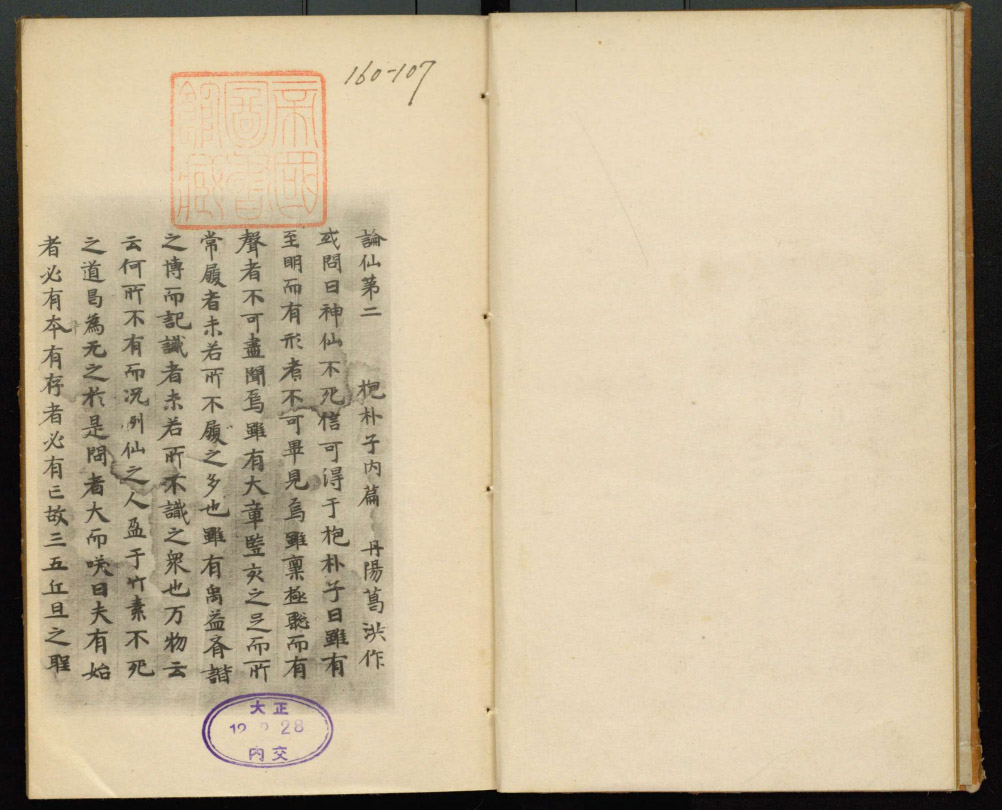 160-107
帝國
圖書
館藏
論仙第二 抱朴子内篇 丹陽葛洪作
或問曰神仙不死信可得于抱朴子曰雖有
至明而有形者不可畢見焉雖稟極聡而有
聲者不可盡聞焉雖有大章竪亥之足而所
常履者未若所不履之多也雖有禹益齊諧
之博而記識者未若所不識之衆也万物云
云何所不有而况列仙之人盈于竹素不死
之道曷為无之於是問者大而咲曰夫有始
者必有卒有存者必有亡故三五丘旦之聖
大正
28
内交